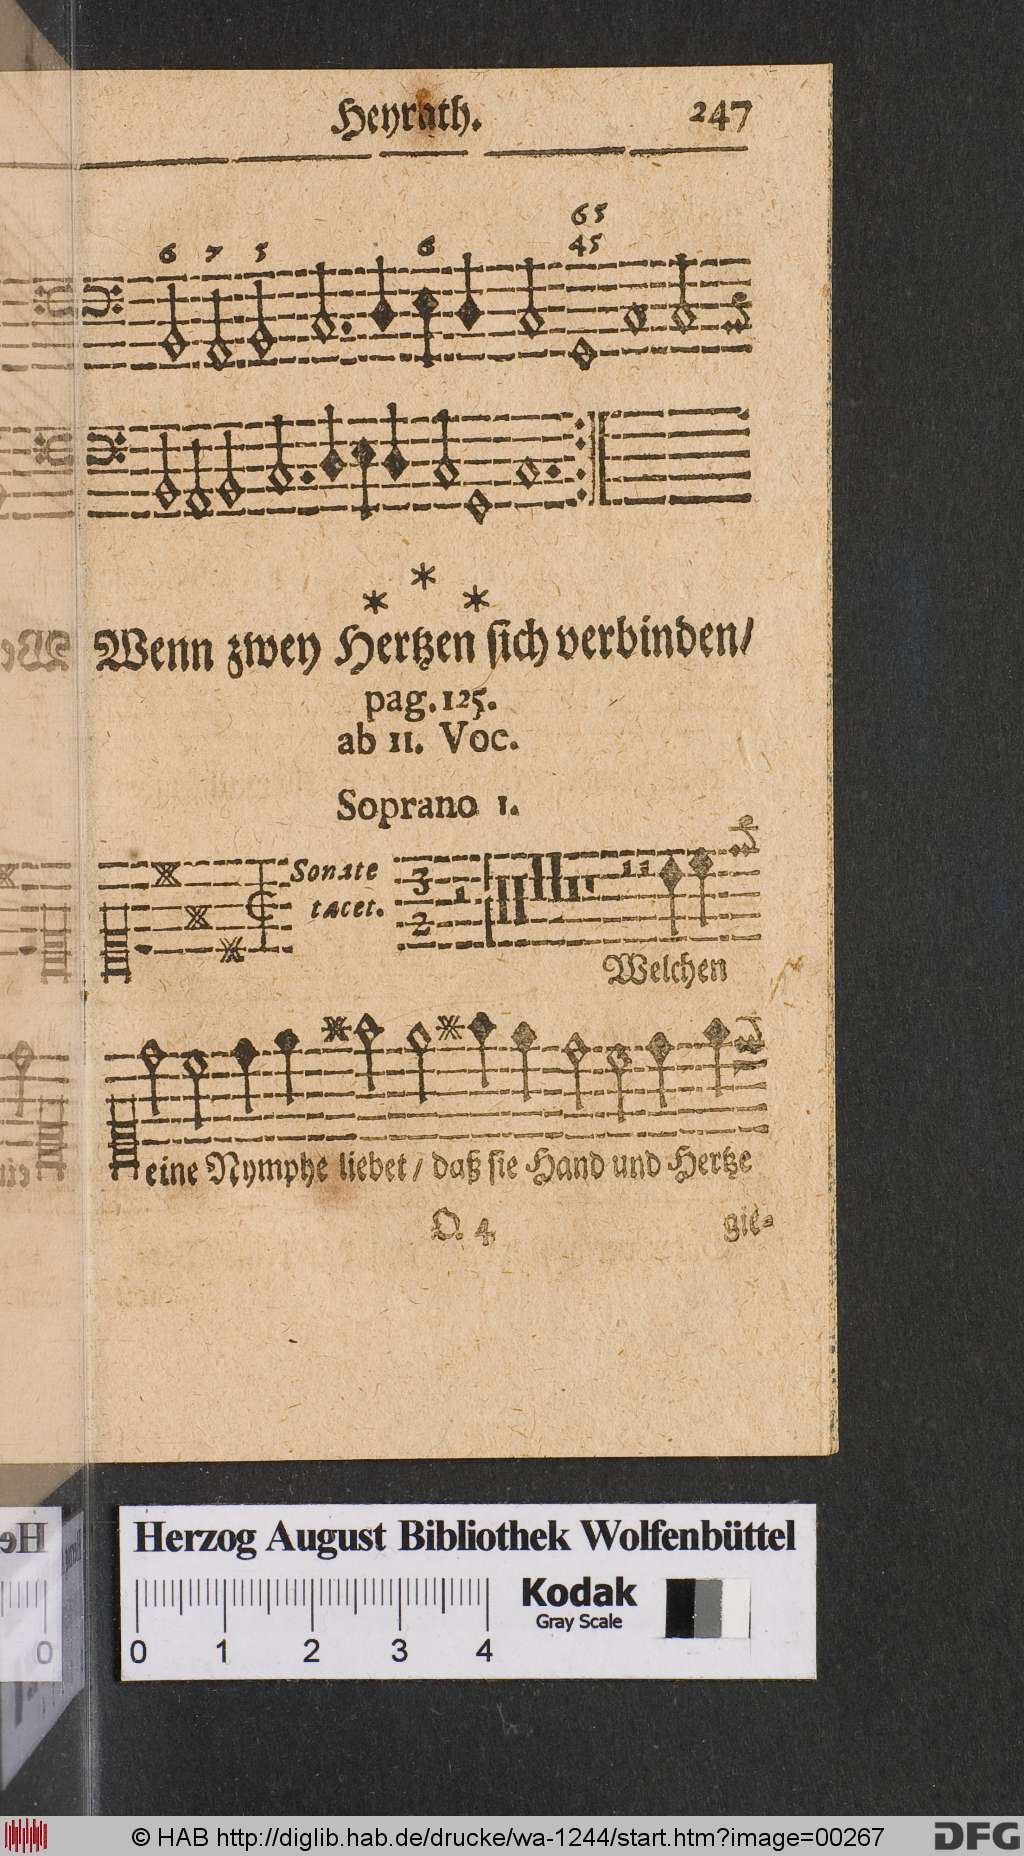 Heyrath. 247
65
6 7 5 6 45
Wenn zwey Hertzen sich verbinden/
pag. 125.
ab 11. Voc.
Soprano 1.
Sonate
tacet.
3
2
Welchen
eine Nymphe liebet/ daß sie Hand und Hertze
Q. 4 gie-
Herzog August Bibliothek Wolfenbüttel
Kodak
Gray Scale
0 1 2 3 4
© HAB http://diglib.hab.de/drucke/wa-1244/start.htm?image=00267 DFG